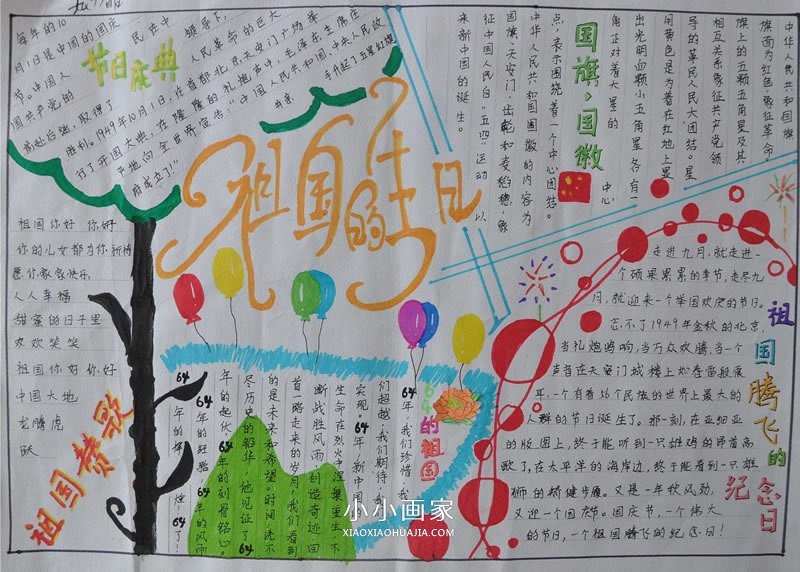 节日庆典
每年的10
月1日是中国的国庆
节。中国人
民在中
国共产党的
领导下,
人民革命的巨大
前赴后继,取得了
胜利。1949年10月1日,在首都北京天安门广场举
行了开国大典,在隆隆的礼炮声中,毛泽东主席庄
严地向全世界宣告:“中国人民共和国中央人民政
府成立了!”
并亲
手升起了五星红旗
祖国的生日
国旗·国徽
中华人民共和国国旗
旗面为红色,象征革命。
旗上的五颗五角星及其
相互关系象征共产党领
导的革民人民大团结。星
用黄色是为着在红地上显
出光明,四颗小五角星各有一
角正对着大星的
中心
点,表示围绕着一个中心团结。
中华人民共和国国徽的内容为
国旗、天安门、齿轮和麦稻穗,象
征中国人民自“五四”运动以
来新中国的诞生。
祖国赞歌
祖国你好 你好
你的儿女都为你祈祷
愿你家家快乐
人人幸福
甜蜜的日子里
欢欢笑笑
祖国你好 你好
中国大地
龙腾虎
跃
64的祖国
64年,我们珍惜,我
们超越,我们期待,我
实现。64年,新中国
生命在烈火中涅槃重生,不
断战胜风雨,创造奇迹,回
首一路走来的岁月,我们看到
的是未来和希望。时间,洗不
尽历史的铅华,他见证了64
年的起伏,64年的刻骨铭心。
64年的经验,64年的风雨
64年的辉煌!64了!
祖国腾飞的纪念日
走进九月,就走进一
个硕果累累的季节,走尽九
月,就迎来一个举国欢庆的节日。
忘不了1949年金秋的北京,
当礼炮鸣响,当万众欢腾,当一个
声音在天安门城楼上如春雷般震
年,一个有着56个民族的世界上最大的
人群的节日诞生了。那一刻,在亚细亚
的版图上,终于能听到一只雄鸡的昂首高
歌了,在太平洋的海岸边,终于能看到一只雄
狮的矫健步履。又是一年秋风劲,
又迎一个国庆节。国庆节,一个伟大
的节日,一个祖国腾飞的纪念日!
小小画家
XIAOXIAOHUAJIA.COM